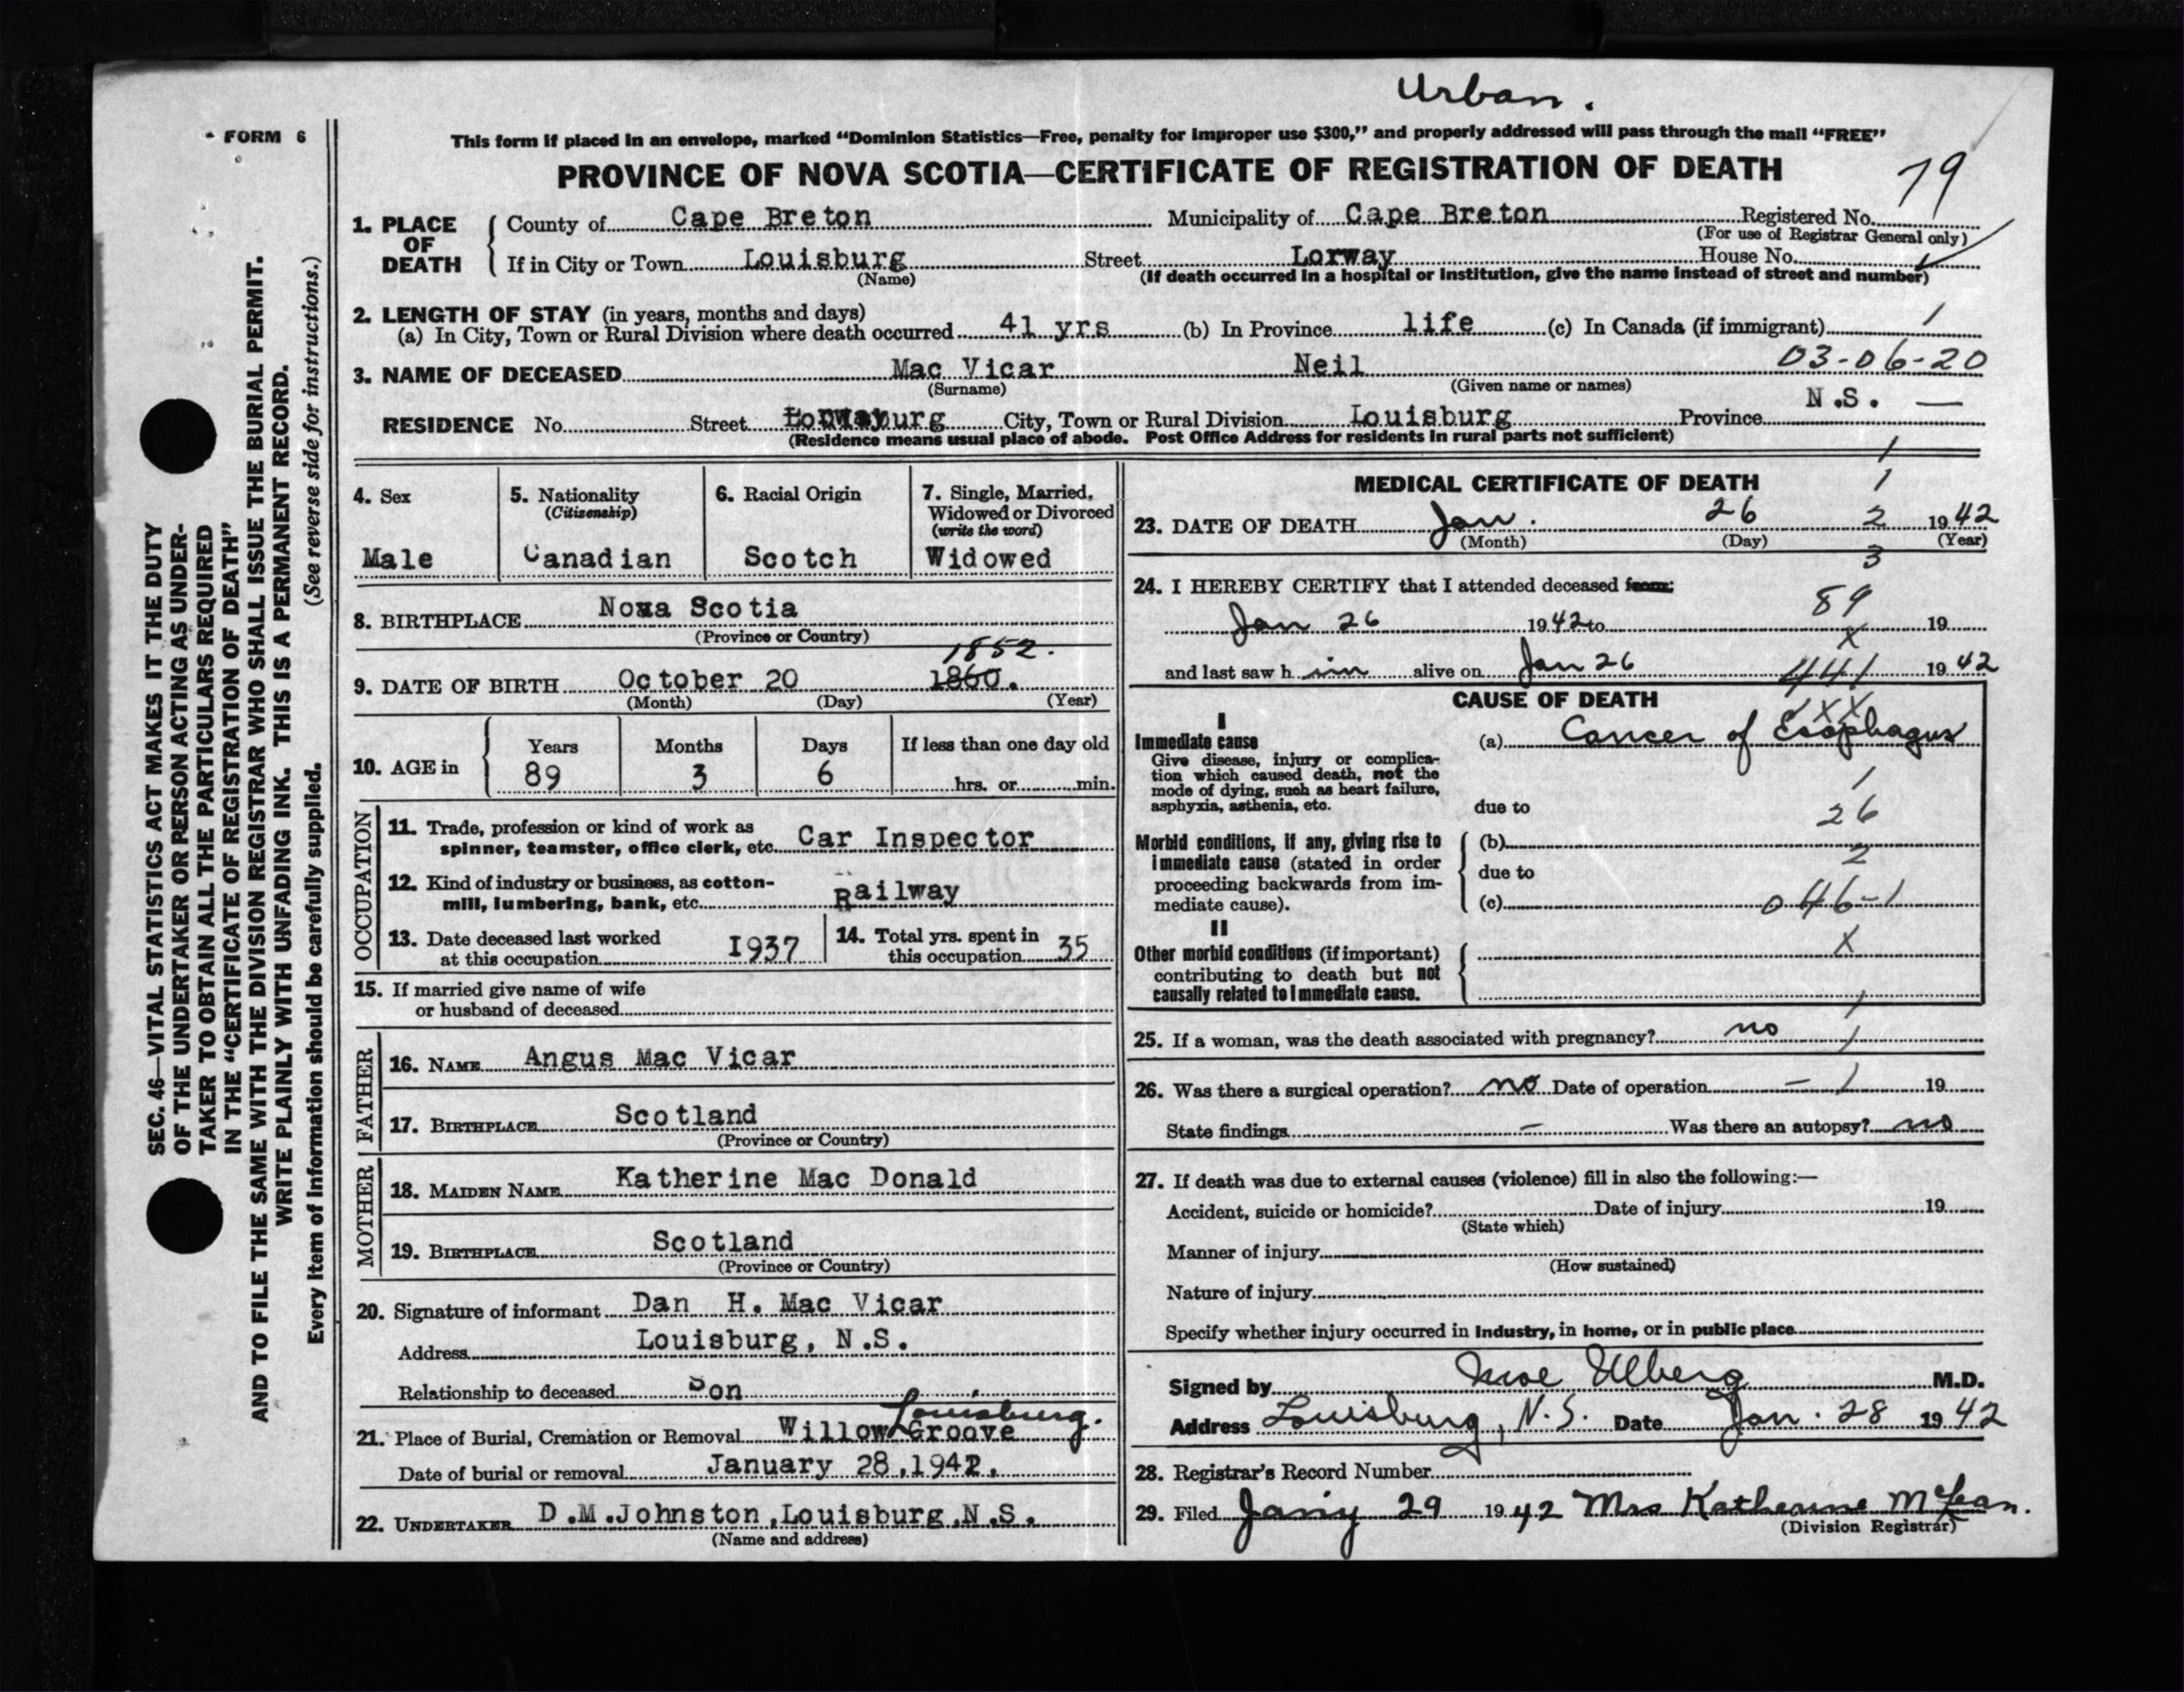 Urban.
FORM 6
This form if placed in an envelope, marked "Dominion Statistics—Free, penalty for improper use $300," and properly addressed will pass through the mail "FREE"
PROVINCE OF NOVA SCOTIA—CERTIFICATE OF REGISTRATION OF DEATH
79
1. PLACE OF DEATH County of Cape Breton Municipality of Cape Breton Registered No.
(For use of Registrar General only)
If in City or Town Louisburg Street Lorway House No.
(Name) (If death occurred in a hospital or institution, give the name instead of street and number)
2. LENGTH OF STAY (in years, months and days)
(a) In City, Town or Rural Division where death occurred 41 yrs (b) In Province life (c) In Canada (if immigrant) 1
3. NAME OF DECEASED Mac Vicar Neil 03-06-20
(Surname) (Given name or names)
RESIDENCE No. Street City, Town or Rural Division Louisburg Province N.S. —
(Residence means usual place of abode. Post Office Address for residents in rural parts not sufficient)
4. Sex
Male
5. Nationality
(Citizenship)
Canadian
6. Racial Origin
Scotch
7. Single, Married, Widowed or Divorced
(write the word)
Widowed
8. BIRTHPLACE Noxa Scotia
(Province or Country)
1852.
9. DATE OF BIRTH October 20 1860.
(Month) (Day) (Year)
10. AGE in Years Months Days If less than one day old
89 3 6 hrs. or min.
OCCUPATION
11. Trade, profession or kind of work as
spinner, teamster, office clerk, etc. Car Inspector
12. Kind of industry or business, as cotton-
mill, lumbering, bank, etc. Railway
13. Date deceased last worked
at this occupation 1937
14. Total yrs. spent in
this occupation 35
15. If married give name of wife
or husband of deceased
FATHER
16. NAME Angus Mac Vicar
17. BIRTHPLACE Scotland
(Province or Country)
MOTHER
18. MAIDEN NAME Katherine Mac Donald
19. BIRTHPLACE Scotland
(Province or Country)
20. Signature of informant Dan H. Mac Vicar
Address Louisburg, N.S.
Relationship to deceased Son
Louisburg.
21. Place of Burial, Cremation or Removal Willow Groove
Date of burial or removal January 28, 1942.
22. UNDERTAKER D.M.Johnston, Louisburg, N.S.
(Name and address)
MEDICAL CERTIFICATE OF DEATH
1
1
23. DATE OF DEATH Jan. 26 2 1942
(Month) (Day) (Year)
3
24. I HEREBY CERTIFY that I attended deceased from:
89
Jan 26 1942 to 19
X
and last saw h im alive on Jan 26 441 1942
CAUSE OF DEATH
XX
I
Immediate cause
Give disease, injury or complica-
tion which caused death, not the
mode of dying, such as heart failure,
asphyxia, asthenia, etc.
(a) Cancer of Esophagus
1
due to
26
Morbid conditions, if any, giving rise to
immediate cause (stated in order
proceeding backwards from im-
mediate cause).
(b)
2
due to
(c) 046-1
II
Other morbid conditions (if important)
contributing to death but not
causally related to immediate cause.
X
1
25. If a woman, was the death associated with pregnancy? no 1
26. Was there a surgical operation? no Date of operation – 1 19
State findings – Was there an autopsy? no
27. If death was due to external causes (violence) fill in also the following:—
Accident, suicide or homicide? Date of injury 19
(State which)
Manner of injury
(How sustained)
Nature of injury
Specify whether injury occurred in industry, in home, or in public place
Signed by M.D.
Address Louisburg, N.S. Date Jan. 28 1942
28. Registrar's Record Number
29. Filed Jany 29 1942 Mrs Katherine McLean.
(Division Registrar)
SEC. 46—VITAL STATISTICS ACT MAKES IT THE DUTY
OF THE UNDERTAKER OR PERSON ACTING AS UNDER-
TAKER TO OBTAIN ALL THE PARTICULARS REQUIRED
IN THE "CERTIFICATE OF REGISTRATION OF DEATH"
AND TO FILE THE SAME WITH THE DIVISION REGISTRAR WHO SHALL ISSUE THE BURIAL PERMIT.
WRITE PLAINLY WITH UNFADING INK. THIS IS A PERMANENT RECORD.
Every item of information should be carefully supplied. (See reverse side for instructions.)